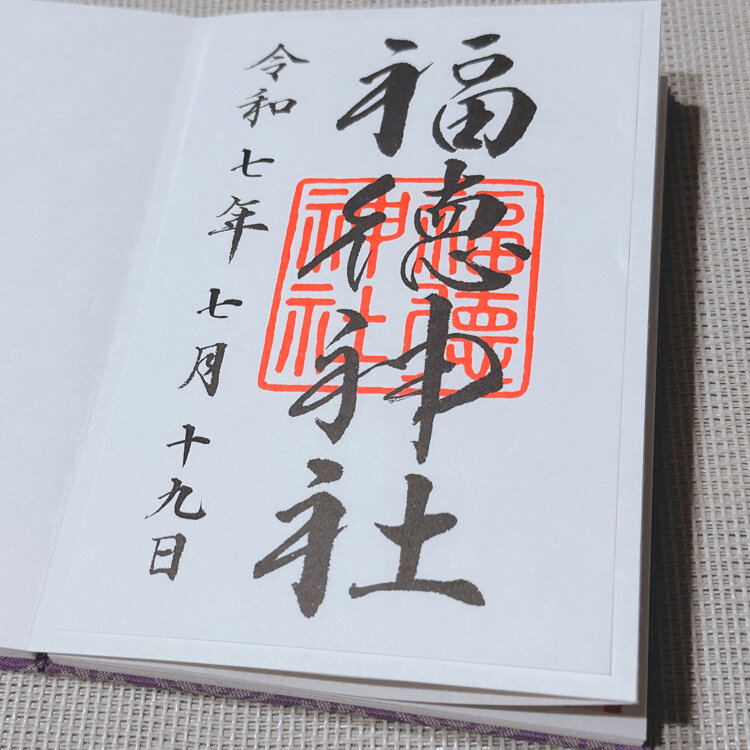 福徳神社
福徳
神社
令和七年七月十九日